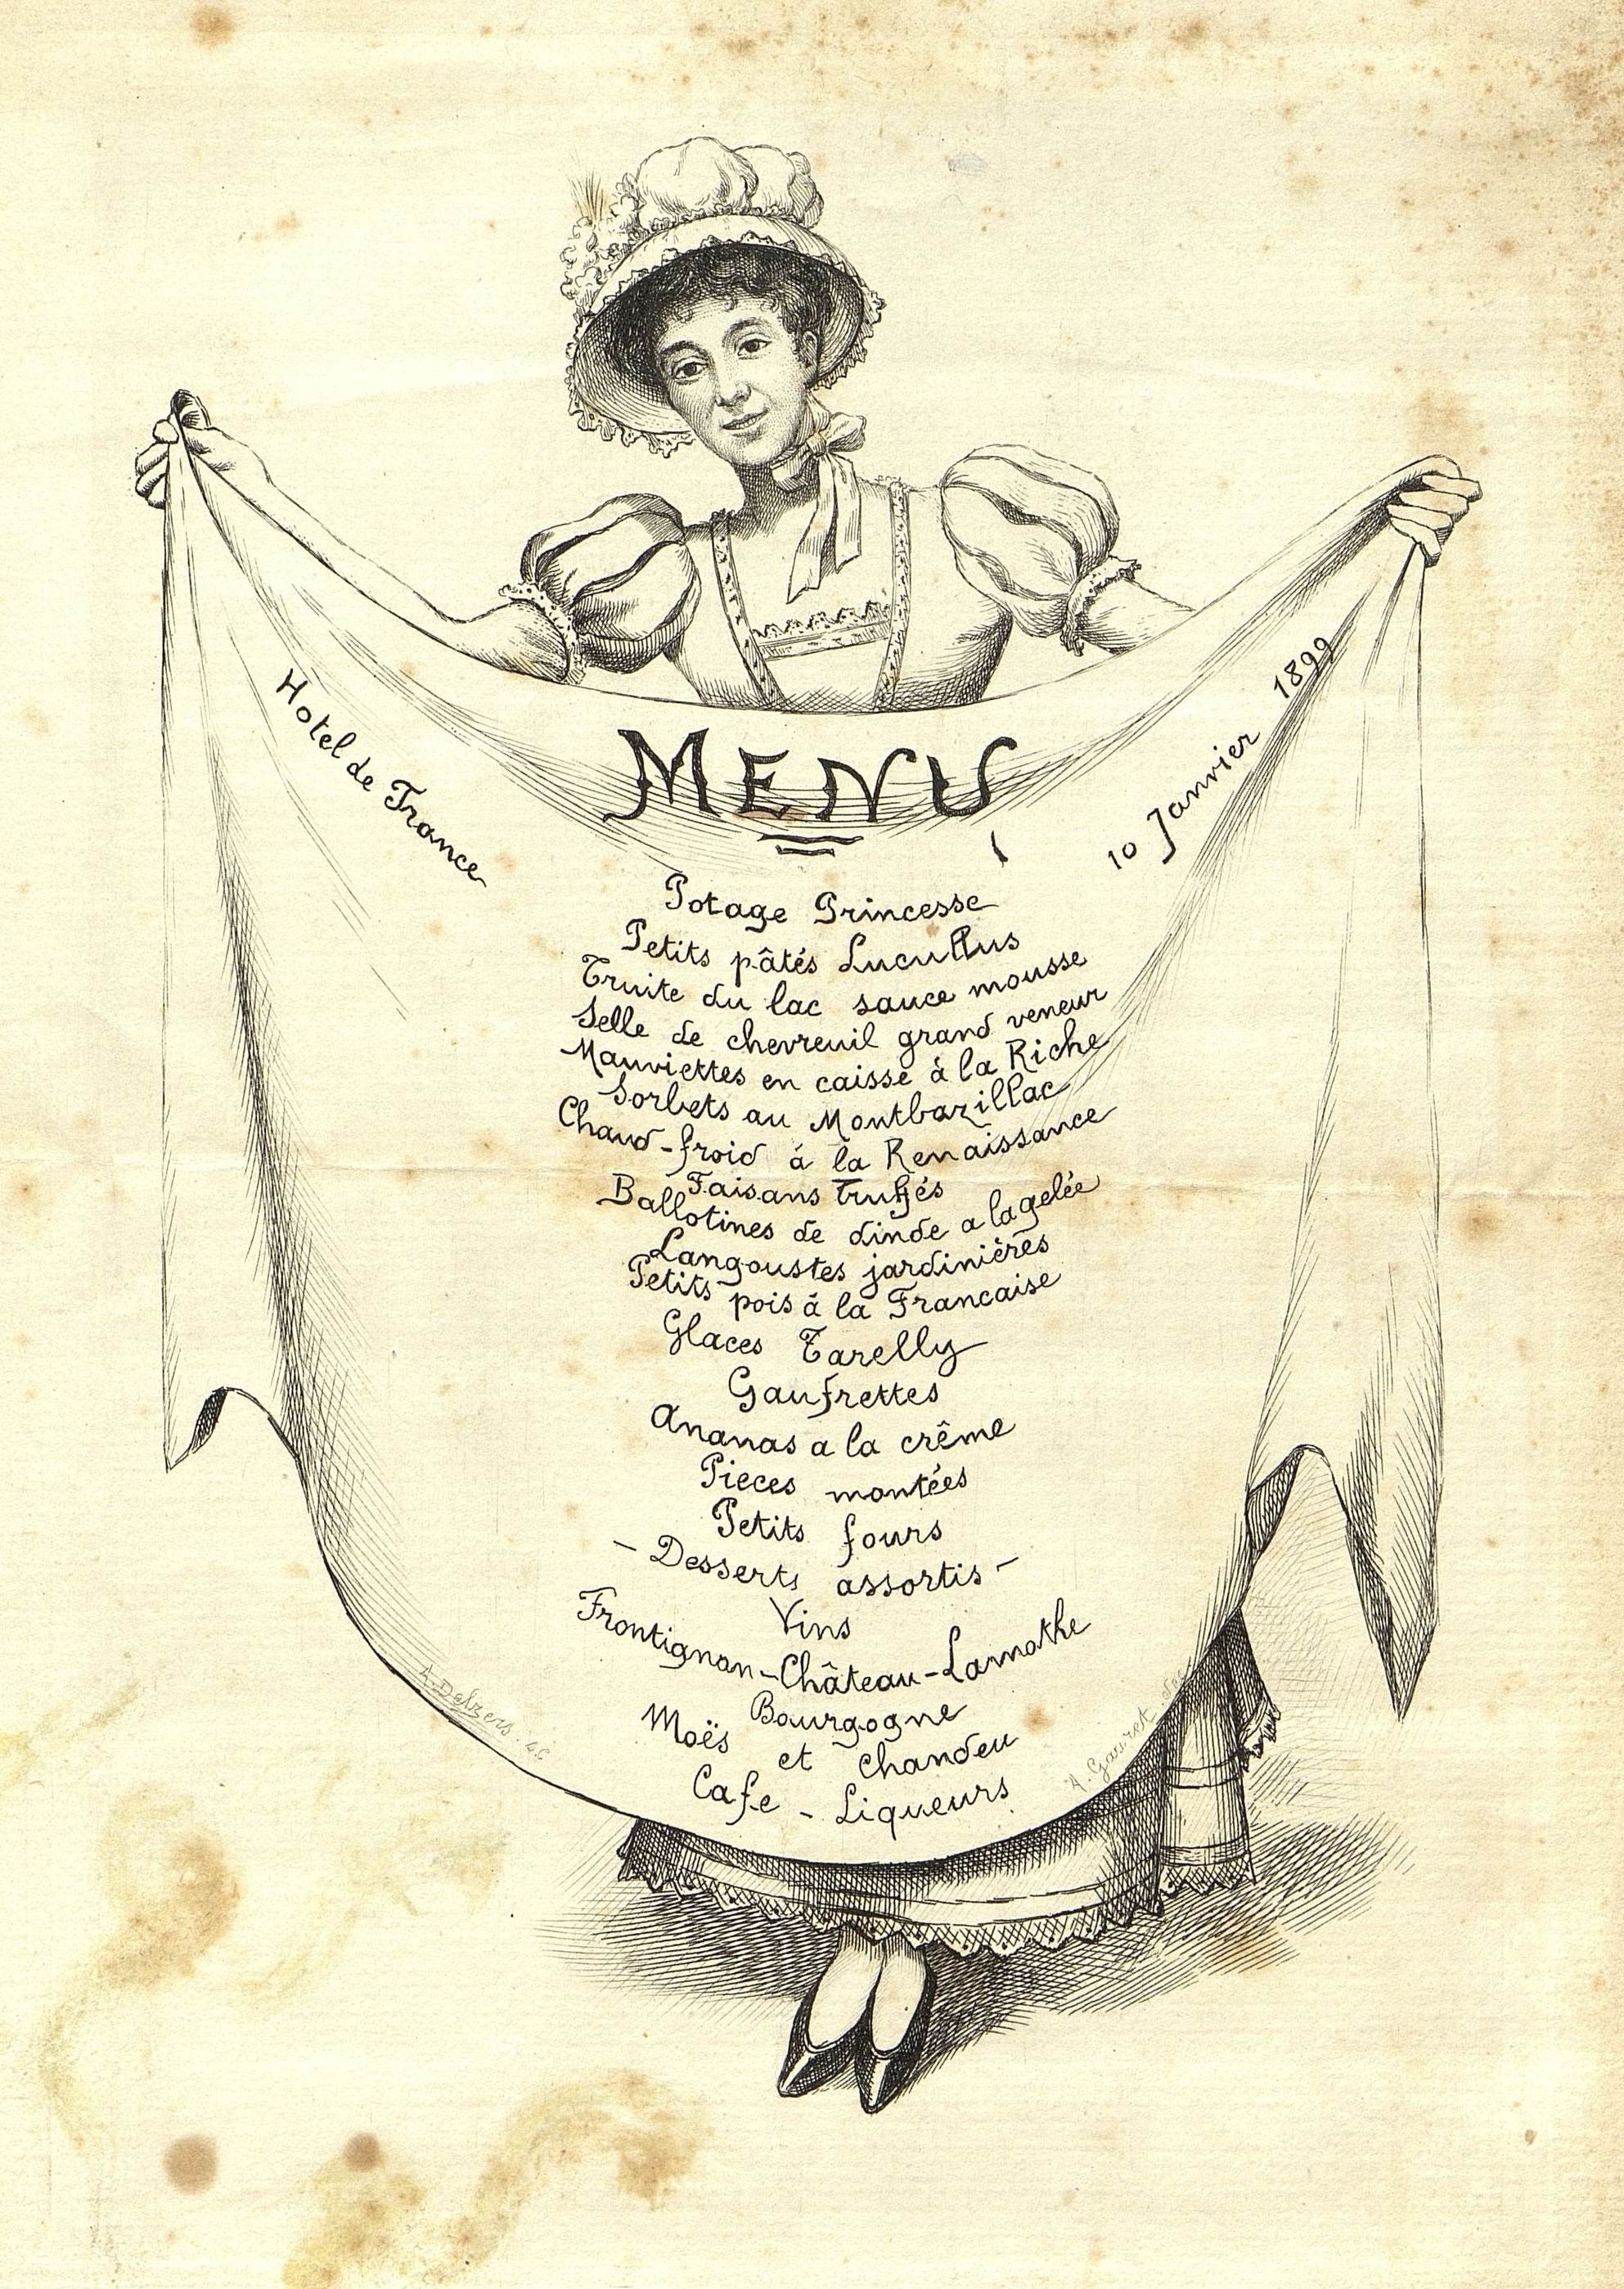 Hotel de France
10 Janvier 1899
MENU
Potage Princesse
Petits pâtés Lucullus
Truite du lac sauce mousse
Selle de chevreuil grand veneur
Mauviettes en caisse à la Riche
Sorbets au Montbazillac
Chaud-froid à la Renaissance
Faisans truffés
Ballotines de dinde a la gelée
Langoustes jardinières
Petits pois à la Francaise
Glaces Tarelly
Gaufrettes
Ananas a la crême
Pieces montées
Petits fours
- Desserts assortis -
Vins
Frontignan-Château-Lamothe
Bourgogne
Moës et Chandeu
Cafe - Liqueurs
A. Delzers. sc
A. Gauret